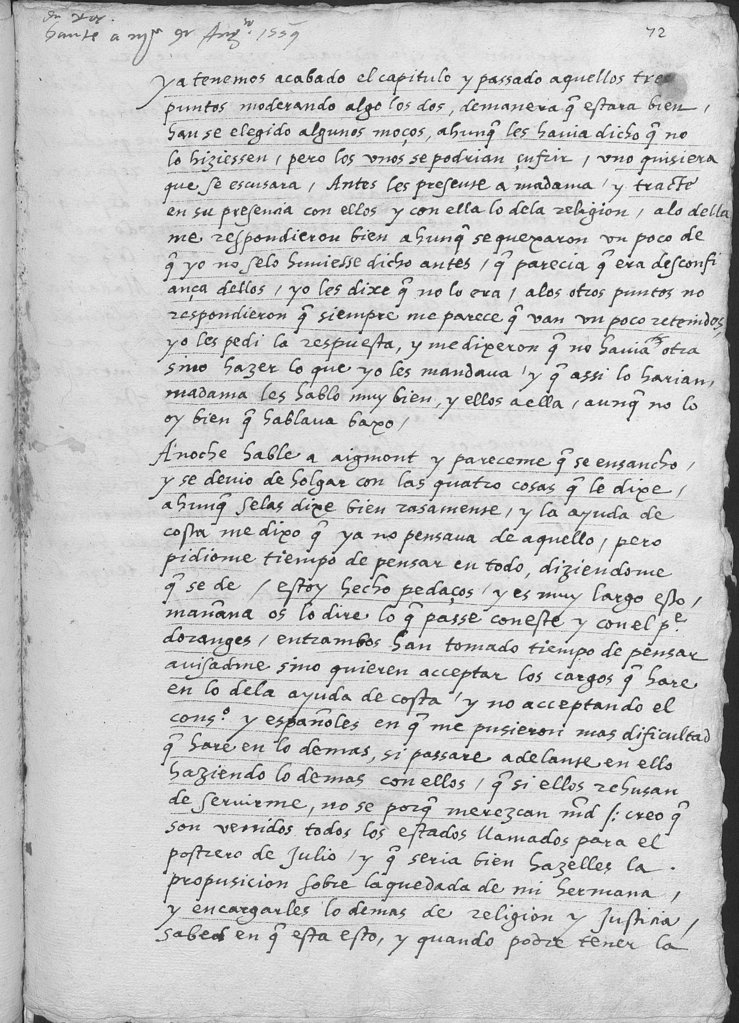 72
1559
ya tenemos acabado el capitulo y passado aquellos tres
puntos moderando algo los dos, demanera q̃ estara bien,
han se elegido algunos moços, ahunq̃ les havia dicho q̃ no
lo hiziessen, pero los unos se podrian çufrir, uno quisiera
que se escusara, Antes les presente a madama, y tracté
en su presencia con ellos y con ella lo dela religion, alo della
me respondieron bien ahunq̃ se quexaron un poco de
q̃ yo no selo huviesse dicho antes, q̃ parecia q̃ era desconfi
ança dellos, yo les dixe q̃ no lo era, alos otros puntos no
respondieron q̃ siempre me parece q̃ van un poco retenidos,
yo les pedi la respuesta, y me dixeron q̃ no havia otra
sino hazer lo que yo les mandava, y q̃ assi lo harian,
madama les hablo muy bien, y ellos a ella, aunq̃ no lo
oy bien q̃ hablava baxo,
Anoche hable a aigmont y pareceme q̃ se ensancho,
y se devio de holgar con las quatro cosas q̃ le dixe,
ahunq̃ selas dixe bien rasamente, y la ayuda de
costa me dixo q̃ ya no pensava de aquello, pero
pidiome tiempo de pensar en todo, diziendome
q̃ se de / estoy hecho pedaços, y es muy largo esto,
mañana os lo dire lo q̃ passe coneste y con el p.e
doranges, entrambos han tomado tiempo de pensar
avisadme sino quieren acceptar los cargos q̃ hare
en lo dela ayuda de costa, y no acceptando el
cons.o y españoles en q̃ me pusieron mas dificultad
q̃ hare en lo demas, si passare adelante en ello
haziendo lo demas con ellos, q̃ si ellos rehusan
de servirme, no se porq̃ merezcan m̃d /: creo q̃
son venidos todos los estados llamados para el
postrero de Julio, y q̃ seria bien hazelles la
propusicion sobre la quedada de mi hermana,
y encargarles lo demas de religion y Justicia,
sabed en q̃ esta esto, y quando podre tener la